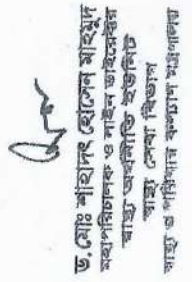 ড. মোঃ শাহাদৎ হোসেন মাহমুদ
মহাপরিচালক
স্বাস্থ্য অর্থনীতি ইউনিট
স্বাস্থ্য সেবা বিভাগ
স্বাস্থ্য ও পরিবার কল্যাণ মন্ত্রণালয়